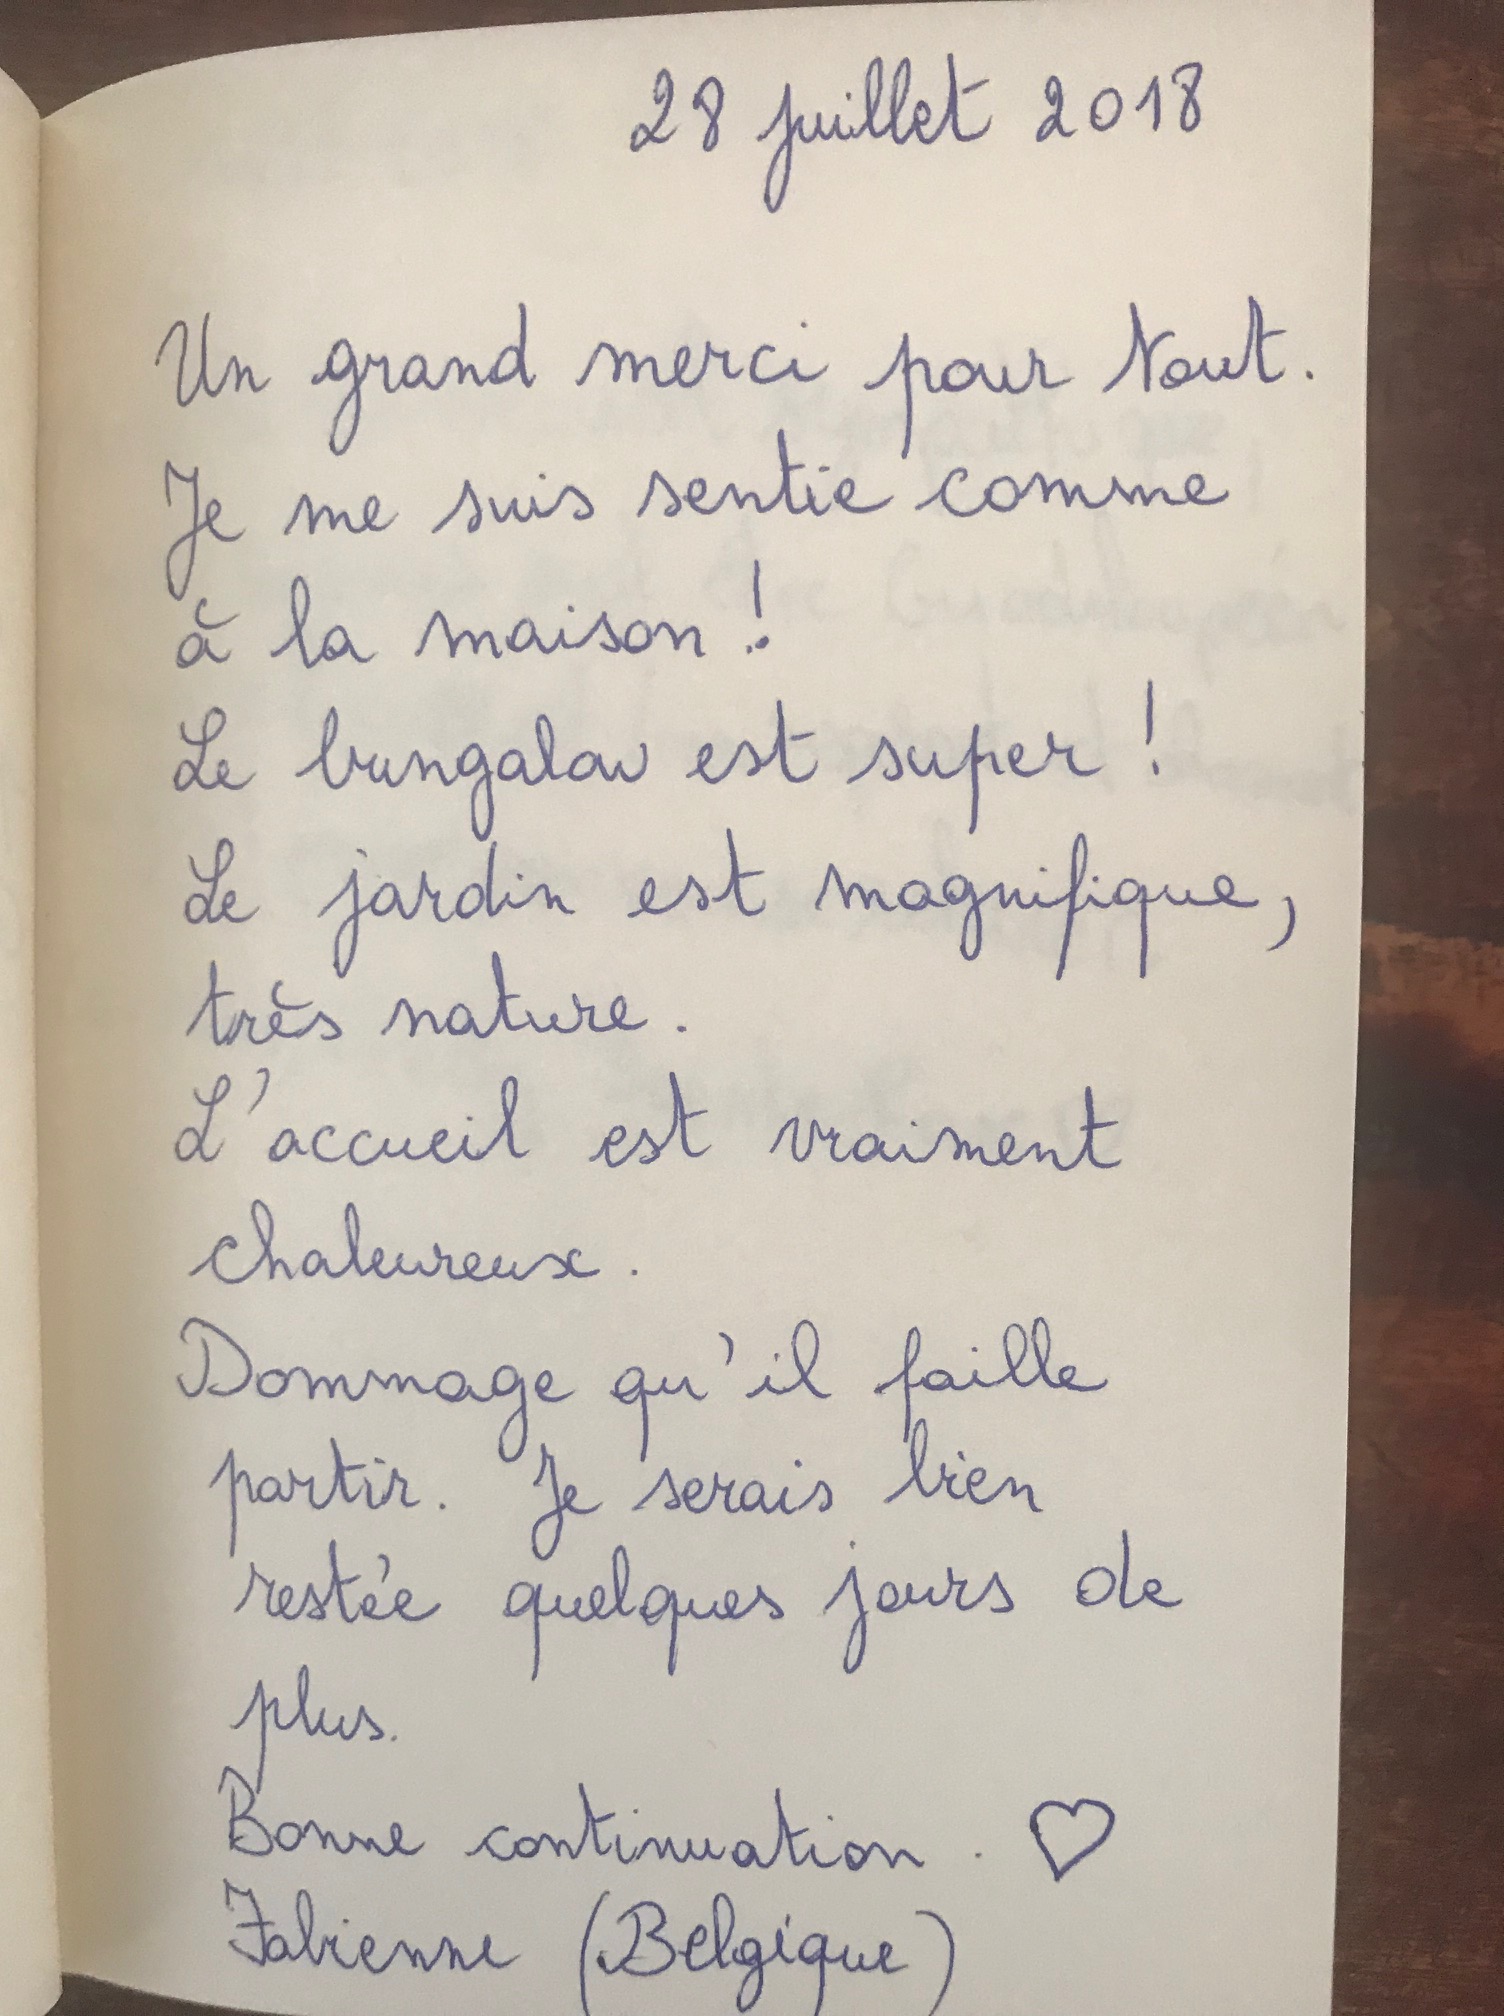 28 juillet 2018
Un grand merci pour tout.
Je me suis sentie comme
à la maison !
Le bungalow est super !
Le jardin est magnifique,
très nature.
L'accueil est vraiment
chaleureux.
Dommage qu'il faille
partir. Je serais bien
restée quelques jours de
plus.
Bonne continuation. ♡
Fabienne (Belgique)